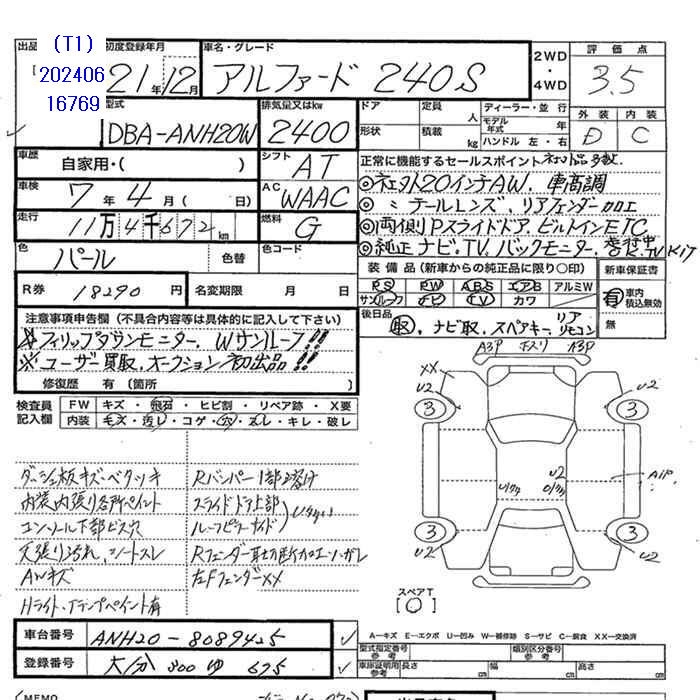 (T1)
202406
16769
出品
初度登録年月
21年12月
車名・グレード
アルファード 240S
2WD・4WD
評価点
3.5
外装 内装
D C
型式
DBA-ANH20W
排気量又はkw
2400
ドア
定員 人
ディーラー・並行
モデル年式 年
形状
積載 kg
ハンドル 左・右
車歴
自家用・( )
シフト
AT
車検
7年4月( 日)
AC
WAAC
走行
11万4千672km
燃料
G
色
パール
色替
色コード
R券 18290円
名変期限 月 日
正常に機能するセールスポイント
◎社外20インチAW. 車高調
〃テールレンズ、リアフェンダー加工
◎両側Pスライドドア、ビルトインETC
◎純正ナビ・TV. バックモニター. 走行中TVKIT
装備品(新車からの純正品に限り○印)
PS PW ABS エアB アルミW
サンルーフ ナビ TV カワ
新車保証書
有 車内積込無効
後日品
取, ナビ取, スペアキー, リアリモコン
注意事項申告欄(不具合内容等は具体的に記入して下さい)
※フィリップダウンモニター. Wサンルーフ!!
※ユーザー買取. オークション初出品!!
修復歴 有(箇所 )
検査員記入欄
FW キズ・飛石・ヒビ割・リペア跡・X要
内装 キズ・汚レ・コゲ・穴・スレ・キレ・破レ
ダッシュ板キズ・ベタツキ
内装内張り各所ペイント
コンソール下部ビス穴
天張り汚れ、シートスレ
AWキズ
Hライト、Tランプペイント有
スライドドア上部
Rフェンダー
左Fフェンダー XX
A3P
A3P
XX
U2
U2
3
3
U2
3
3
U2
U2
スペアT
[○]
A-キズ E-エクボ U-凹み W-補修跡 S-サビ C-腐食 XX-交換済
車台番号
ANH20-8089425
型式指定番号
類別区分番号
登録番号
大分 300 ゆ 675
車庫証明用参考
長さ cm
幅 cm
高さ cm
MEMO